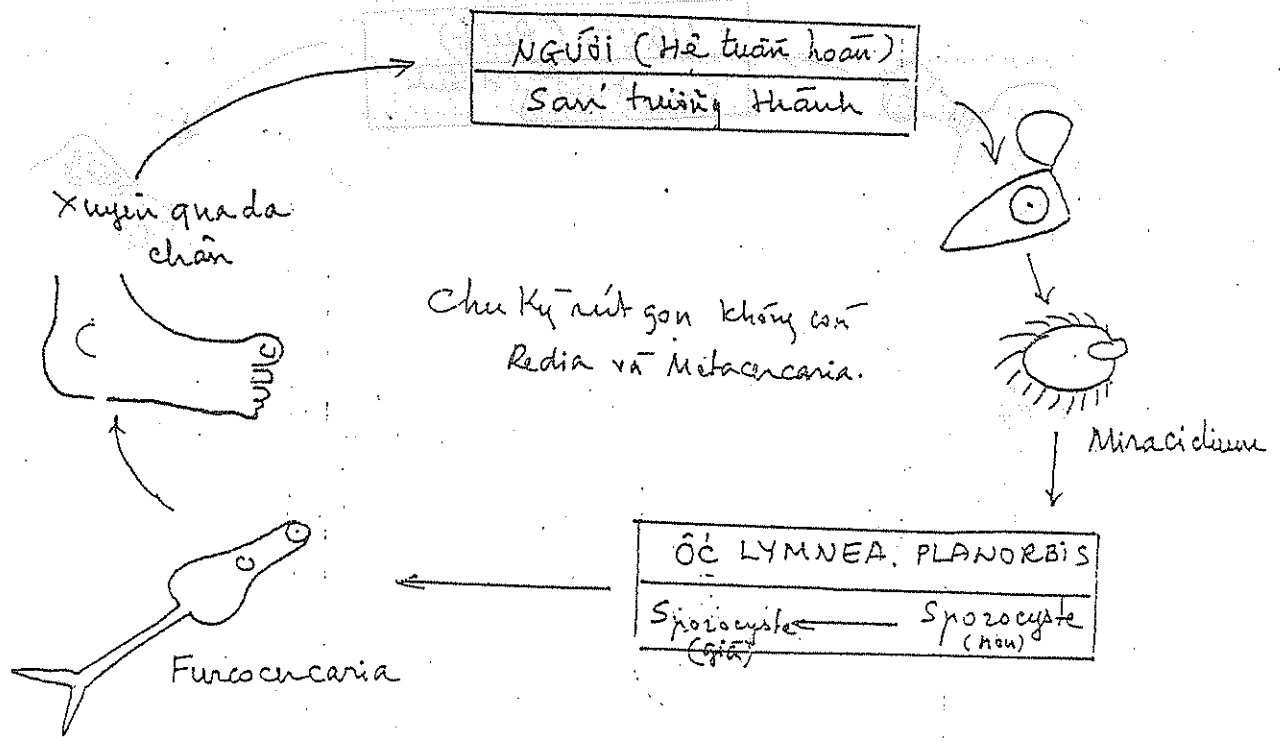 NGƯỜI (Hệ tuần hoàn)
Sán trưởng thành
Xuyên qua da
chân
Chu Kỳ rút gọn không còn
Redia và Métacercaria.
Miracidium
ỐC LYMNEA. PLANORBIS
Sporocyste (già) ← Sporocyste (non)
Furcocercaria